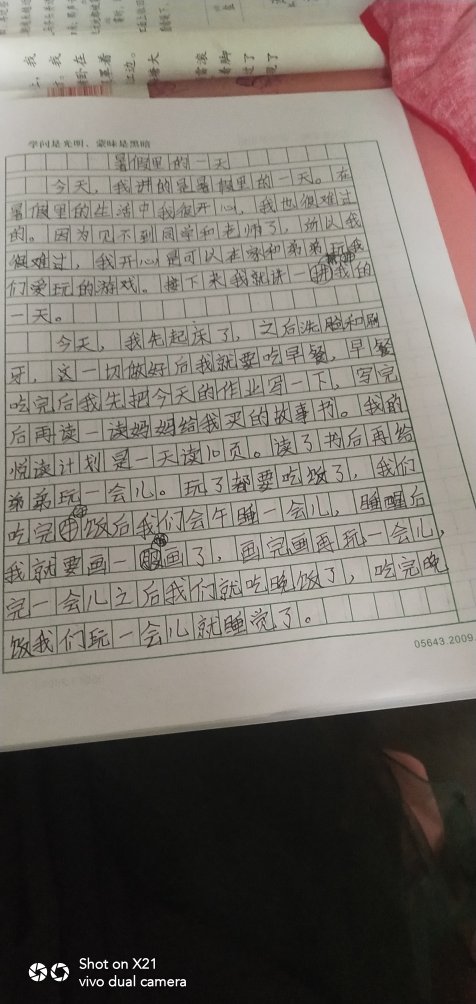 学问是光明，蒙昧是黑暗
暑假里的一天
今天，我讲的是暑假里的一天。在
暑假里的生活中我很开心，我也很难过
的。因为见不到同学和老师了，所以我
很难过，我开心是可以在家和弟弟玩我
们爱玩的游戏。接下来我就讲一讲我的
一天。
今天，我先起床了，之后洗脸和刷
牙，这一切做好后我就要吃早餐，早餐
吃完后我先把今天的作业写一下，写完
后再读一读妈妈给我买的故事书。我的
悦读计划是一天读10页。读了书后再给
弟弟玩一会儿。玩了都要吃饭了，我们
吃完饭后我们会午睡一会儿，睡醒后
我就要画一画了，画完画再玩一会儿，
完一会儿之后我们就吃晚饭了，吃完晚
饭我们玩一会儿就睡觉了。
05643.2009.
Shot on X21
vivo dual camera